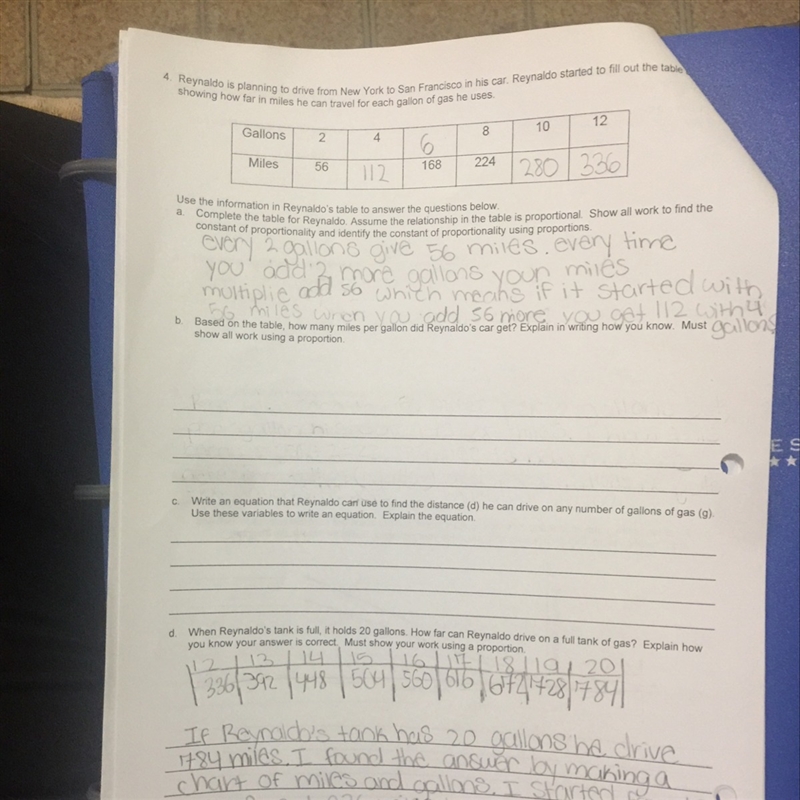 4. Reynaldo is planning to drive from New York to San Francisco in his car. Reynaldo started to fill out the table
showing how far in miles he can travel for each gallon of gas he uses.
Gallons 2 4 6 8 10 12
Miles 56 112 168 224 280 336
Use the information in Reynaldo's table to answer the questions below.
a. Complete the table for Reynaldo. Assume the relationship in the table is proportional. Show all work to find the
constant of proportionality and identify the constant of proportionality using proportions.
every 2 gallons give 56 miles. every time
you add 2 more gallons your miles
multiplie add 56 which means if it started with
56 miles when you add 56 more you get 112 with 4
gallons
b. Based on the table, how many miles per gallon did Reynaldo's car get? Explain in writing how you know. Must
show all work using a proportion.
E S
c. Write an equation that Reynaldo can use to find the distance (d) he can drive on any number of gallons of gas (g).
Use these variables to write an equation. Explain the equation.
d. When Reynaldo's tank is full, it holds 20 gallons. How far can Reynaldo drive on a full tank of gas? Explain how
you know your answer is correct. Must show your work using a proportion.
12 13 14 15 16 17 18 19 20
336 392 448 504 560 616 672 728 784
If Reynaldo's tank has 20 gallons he drive
784 miles. I found the answer by making a
chart of miles and gallons. I started